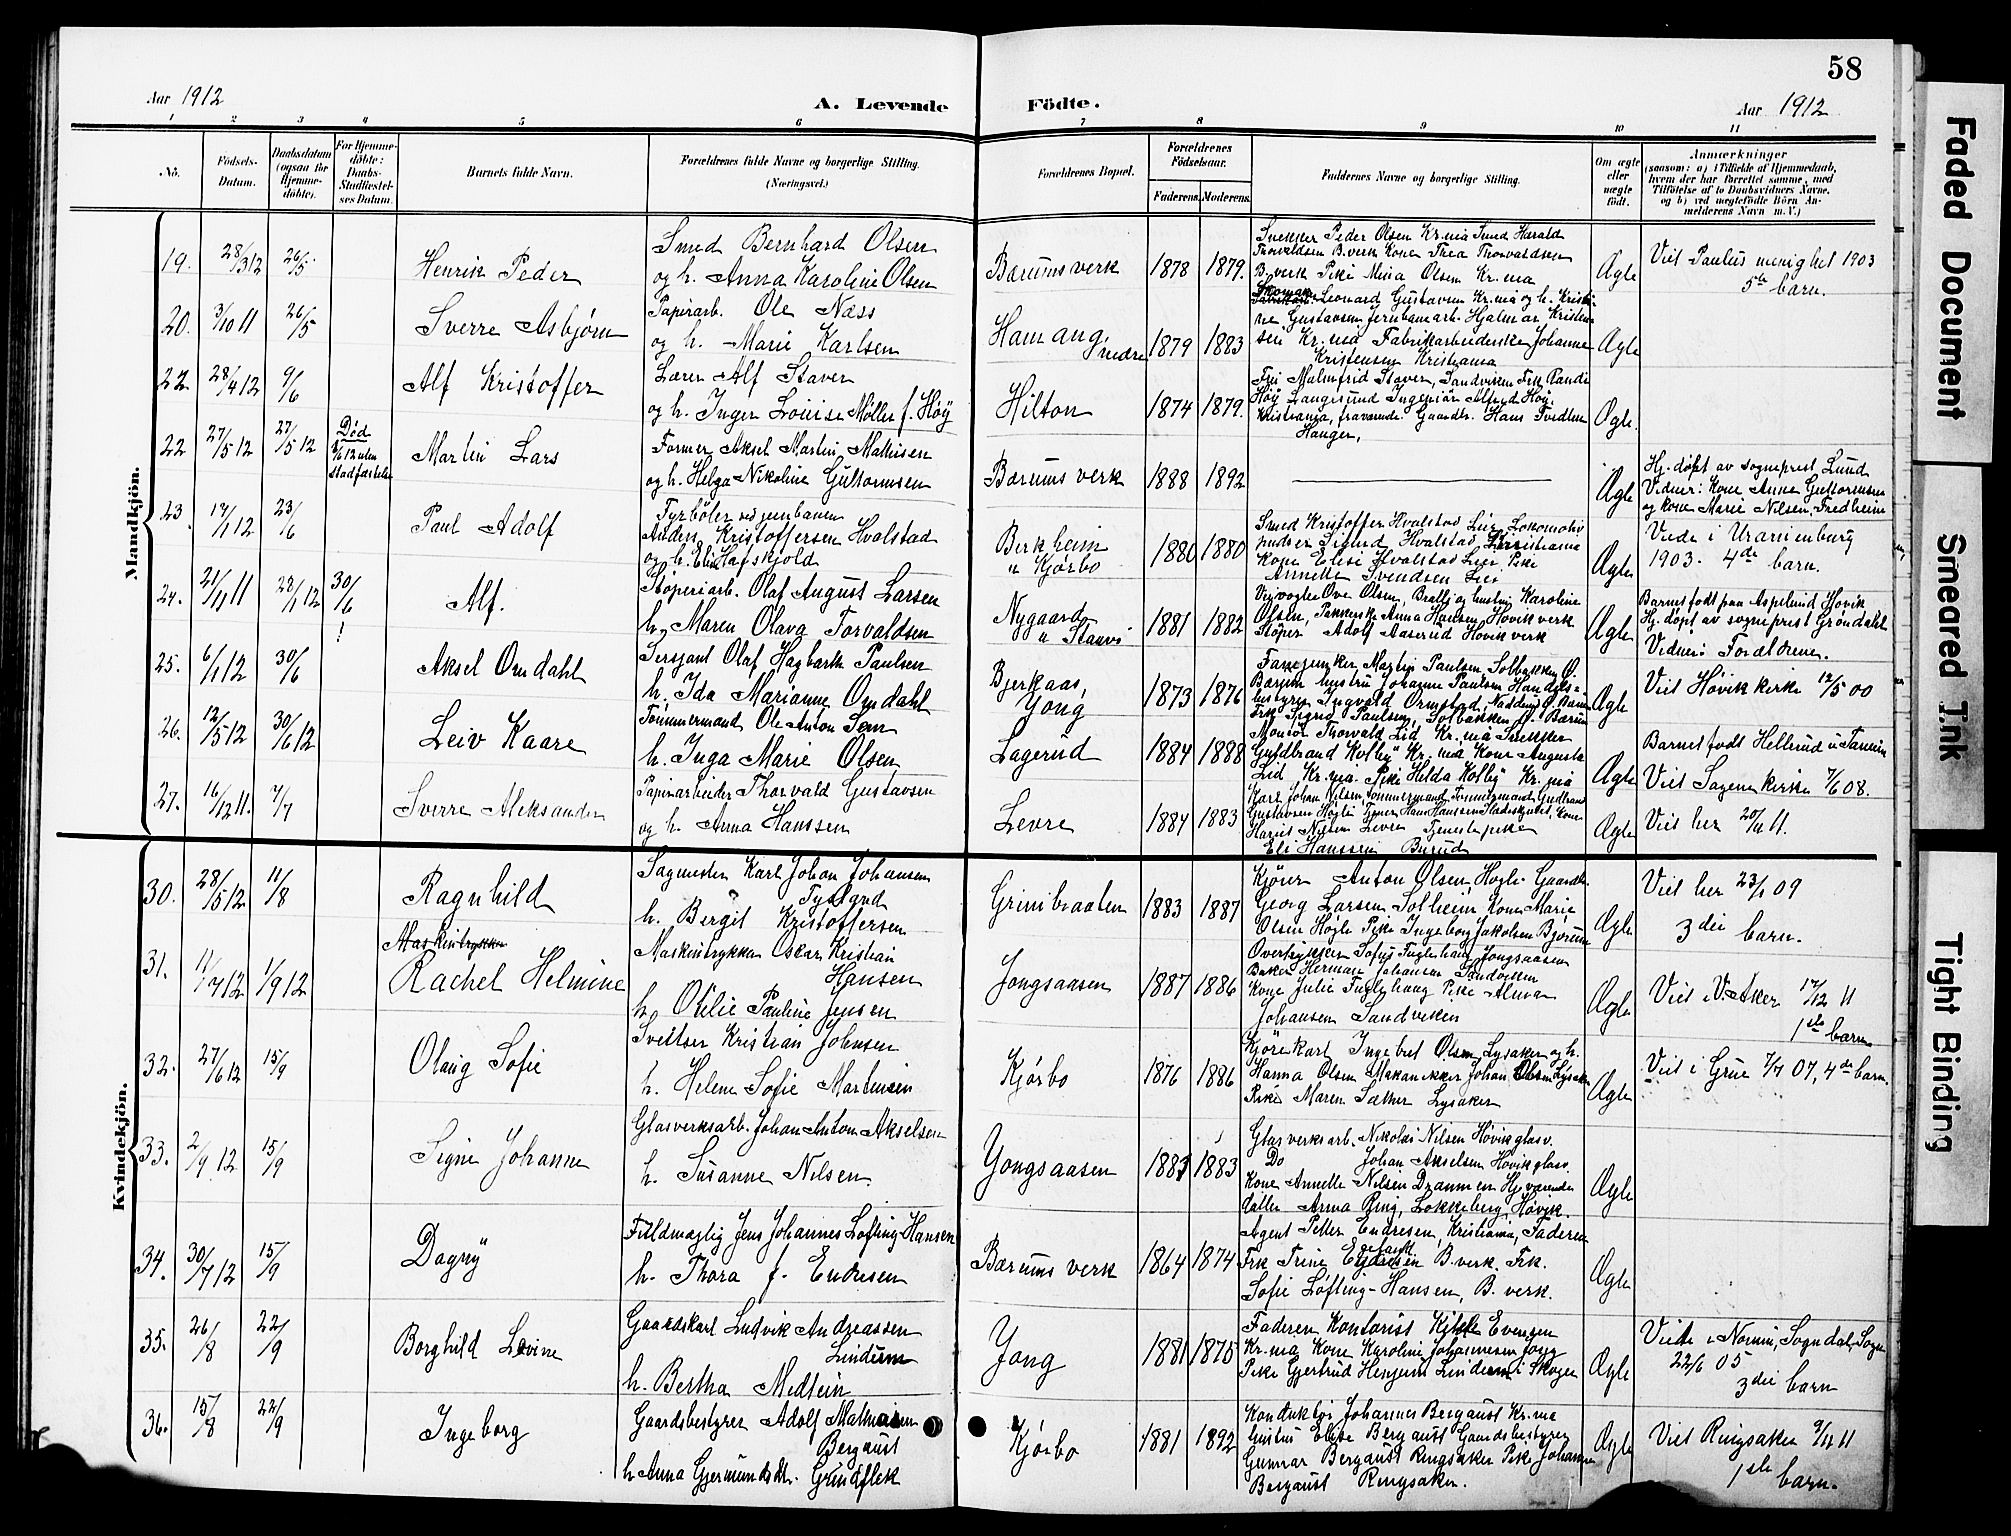 58
Aar 1912
A. Levende Födte.
Aar 1912
1 2 3 4 5 6 7 8 9 10 11
No.
Födsels-
Datum.
Daabsdatum
(ogsaa for
Hjemme-
döbte).
For Hjemme-
döbte:
Daabs-
Stadfæstel-
ses Datum.
Barnets fulde Navn.
Forældrenes fulde Navne og borgerlige Stilling.
(Næringsvei.)
Forældrenes Bopæl.
Forældrenes
Födselsaar.
Faderens. Moderens.
Faddernes Navne og borgerlige Stilling.
Om ægte
eller
uægte
født.
Anmærkninger
(saasom: a) i Tilfælde af Hjemmedaab,
hvem der har forrettet samme, med
Tilföielse af to Daabsvidners Navne,
og b) ved uægtefödte Börn An-
melderens Navn m. V.)
Mandkjön.
19. 28/3 12 26/5 Henrik Peder
Smed Bernhard Olsen
og h. Anna Karoline Olsen
Bærums verk 1878 1879.
Snekker Peder Olsen Kr.nia Smed Harald
Thorvaldsen B.verk Kone Thea Thorvaldsen
B.verk Pike Mina Olsen Kr.nia
Ægte
Viet Paulus menighet 1903
5te barn.
20. 3/10 11 26/5 Sverre Asbjørn
Papirarb. Ole Næss
og h. Marie Karlsen
Hamang nedre 1879 1883
Leonard Gustavsen Kr.nia og h. Kristi-
ne Gustavsen Jernbanearb. Hjalmar Kristen-
sen Kr.nia Fabrikarbeiderske Johanne
Kristensen Kristiania
Ægte
22. 28/4 12 9/6 Alf Kristoffer
Lærer Alf Staver
og h. Inger Louise Møller f. Höy
Hilton 1874 1879.
Fru Malmfrid Staver, Sandviken Frk Randi
Höy Langesund Ingeniør Alfred Höy
Kristiania, fraværende. Gaardbr. Hans Tvedten
Hauger,
Ægte.
22 27/5 12 27/5 12
Død
6 12 uten
stadfæstelse
Martin Lars
Former Aksel Martin Mathisen
og h. Helga Nikoline Guttormsen
Bærums verk 1888 1892
Ægte
Hj. døpt av sogneprest Lund
Vidner: Kone Anne Guttormsen
og kone Marie Nilsen, Fredheim
23 17/1 12 23/6 Paul Adolf
Fyrbøter ved jernbanen
Anders Kristoffersen Hvalstad
og h. Elise Hafskjold
Berkheim
u Kjørbo 1880 1880
Smed Kristoffer Hvalstad Lier Lokomotiv
pudser Sigurd Hvalstad Kristiania
Kone Elise Hvalstad Lier Pike
Annette Svendsen Lier
Ægte
Viede i Uranienborg
1903. 4de barn.
24. 21/11 11 28/1 12 30/6 ! Alf.
Støperiarb. Olaf August Larsen
h. Maren Olava Torvaldsen
Nygaard
u Stanvi 1881 1882
Veivogter Ove Olsen, Bratli og hustru Karoline
Olsen, Pakkerske Anna Hansen Høvik verk
Støper Adolf Aaserud Høvik verk
Ægte
Barnet født paa Aspelund Høvik
Hj. døpt av sogneprest Grøndahl
Vidner: Forældrene.
25. 6/1 12 30/6 Aksel Omdahl
Sersjant Olaf Hagbarth Paulsen
h. Ida Marianne Omdahl
Bjerkaas,
Jong 1873 1876
Fanejunker Martin Paulsen Solbakken Ø.
Bærum hustru Johanne Paulsen Handels=
bestyrer Ingvald Ormstad, Nadderud Ø. Bærum
Frk Sigrid Paulsen, Solbakken Ø. Bærum
Ægte
Viet Høvik kirke 12/5 00
26. 12/5 12 30/6 12 Leiv Kaare
Tømmermand Ole Anton Sem
h. Inga Marie Olsen
Lagerud 1884 1888
Montör Thorvald Lid Kr.nia Snekker
Guldbrand Kolby Kr.nia Kone Augusta
Lid Kr.nia. Pike Helda Kolby Kr.nia
Ægte
Barnet født Hellerud u Tanum
Viet Sagene kirke 7/6 08.
27. 16/12 11. 7/7 Sverre Aleksander
Papirarbeider Thorvald Gustavsen
og h. Anna Hanssen
Levre 1884 1883
Karl Johan Nilsen Tømmermand Tømmermand Gudbrand
Gustavsen Høgli Tjener Hans Hansen Stadskgutt, Kone
Harriet Nilsen Levre Tjenestepike
Eli Hanssen Burud
Ægte
Viet her 20/11 11.
Kvindekjön.
30. 28/5 12 11/8 Ragnhild
Sagmester Karl Johan Johansen
Fyrland
h. Bergit Kristoffersen
Grinibraaten 1883 1887
Kjører Anton Olsen, Høgli. Gaardb.
Georg Larsen Solheim Kone Marie
Olsen Høgli Pike Ingeborg Jakobsen Bjørum
Ægte
Viet her 23/1 09
3die barn.
31. 11/7 12 1/9 12
Maskintrykker
Rachel Helmine
Maskintrykker Oskar Kristian
Hansen
h. Otilie Pauline Jensen
Jongsaasen 1887 1886
Overtrykker Sofus Fuglehaug Jongsaasen
Baker Herman Johansen Sandviken
Kone Julie Fuglehaug Pike Alma
Johansen Sandviken
Ægte
Viet i V. Aker 17/12 11
1ste barn
32. 27/6 12 15/9 Olaug Sofie
Sveitser Kristian Johnsen
h. Helene Sofie Martinsen
Kjørbo 1876 1886
Kjørekarl Ingebret Olsen Lysaker og h.
Hanna Olsen Makanikker Johan Olsen Lysaker
Pike Maren Sæther Lysaker
Ægte
Viet i Grue 7/7 07, 4de barn.
33. 2/9 12 15/9 Signe Johanne
Glasverksarb. Johan Anton Akselsen
h. Susanne Nilsen.
Jongsaasen 1883 1883
Glasverksarb. Nikolai Nilsen Høvik glasv.
Do Johan Akselsen Høvik glasv.
Kone Annette Nilsen Drammen Hj. værende
datter Anna Ring, Løkkeberg, Høvik.
Ægte
34. 30/7 12 15/9 Dagny
Fuldmægtig Jens Johannes Løfting-Hansen
h. Thora f. Endresen
Bærums verk 1864 1874
Agent Petter Endresen, Kristiania, Faderen
Frk Trine Endresen B. verk. Frk.
Sofie Løfting-Hansen, B. verk.
Ægte
35. 26/8 22/9 Borghild Lovine
Gaardskarl Ludvik Andreassen
Linderm
h. Bertha Medlein
Jong 1881 1875
Faderen Kontorist Evensen
Kr.nia Kone Karoline Johannesen Jong
Pike Gjertrud Linderm i Skogen
Ægte
Viede i Norum, Sogndal, Sogn
22/6 05
3die barn
36. 15/8 22/9 Ingeborg
Gaardsbestyrer Adolf Mathiasen
Bergaust
h Anna Gjermundsdt. Grindflek
Kjørbo 1881 1892
Konduktør Johannes Bergaust Kr.nia
hustru Elise Bergaust Gaardsbestyrer
Gunnar Bergaust Ringsaker Pike Johanne
Bergaust Ringsaker.
Ægte
Viet Ringsaker 9/11 11
1ste barn.
Faded Document
Smeared Ink
Tight Binding